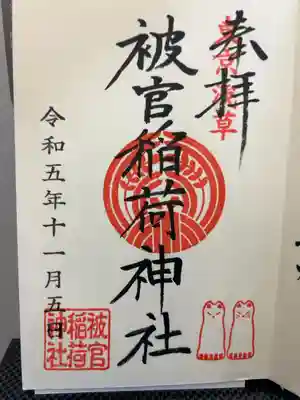 奉拝
東京浅草
被官稲荷神社
令和五年十一月五日
被官
稲荷
神社